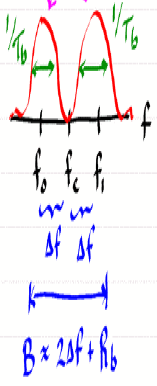 1/Tb 1/Tb
f
f0 fc f1
Δf Δf
B ≈ 2Δf + Rb